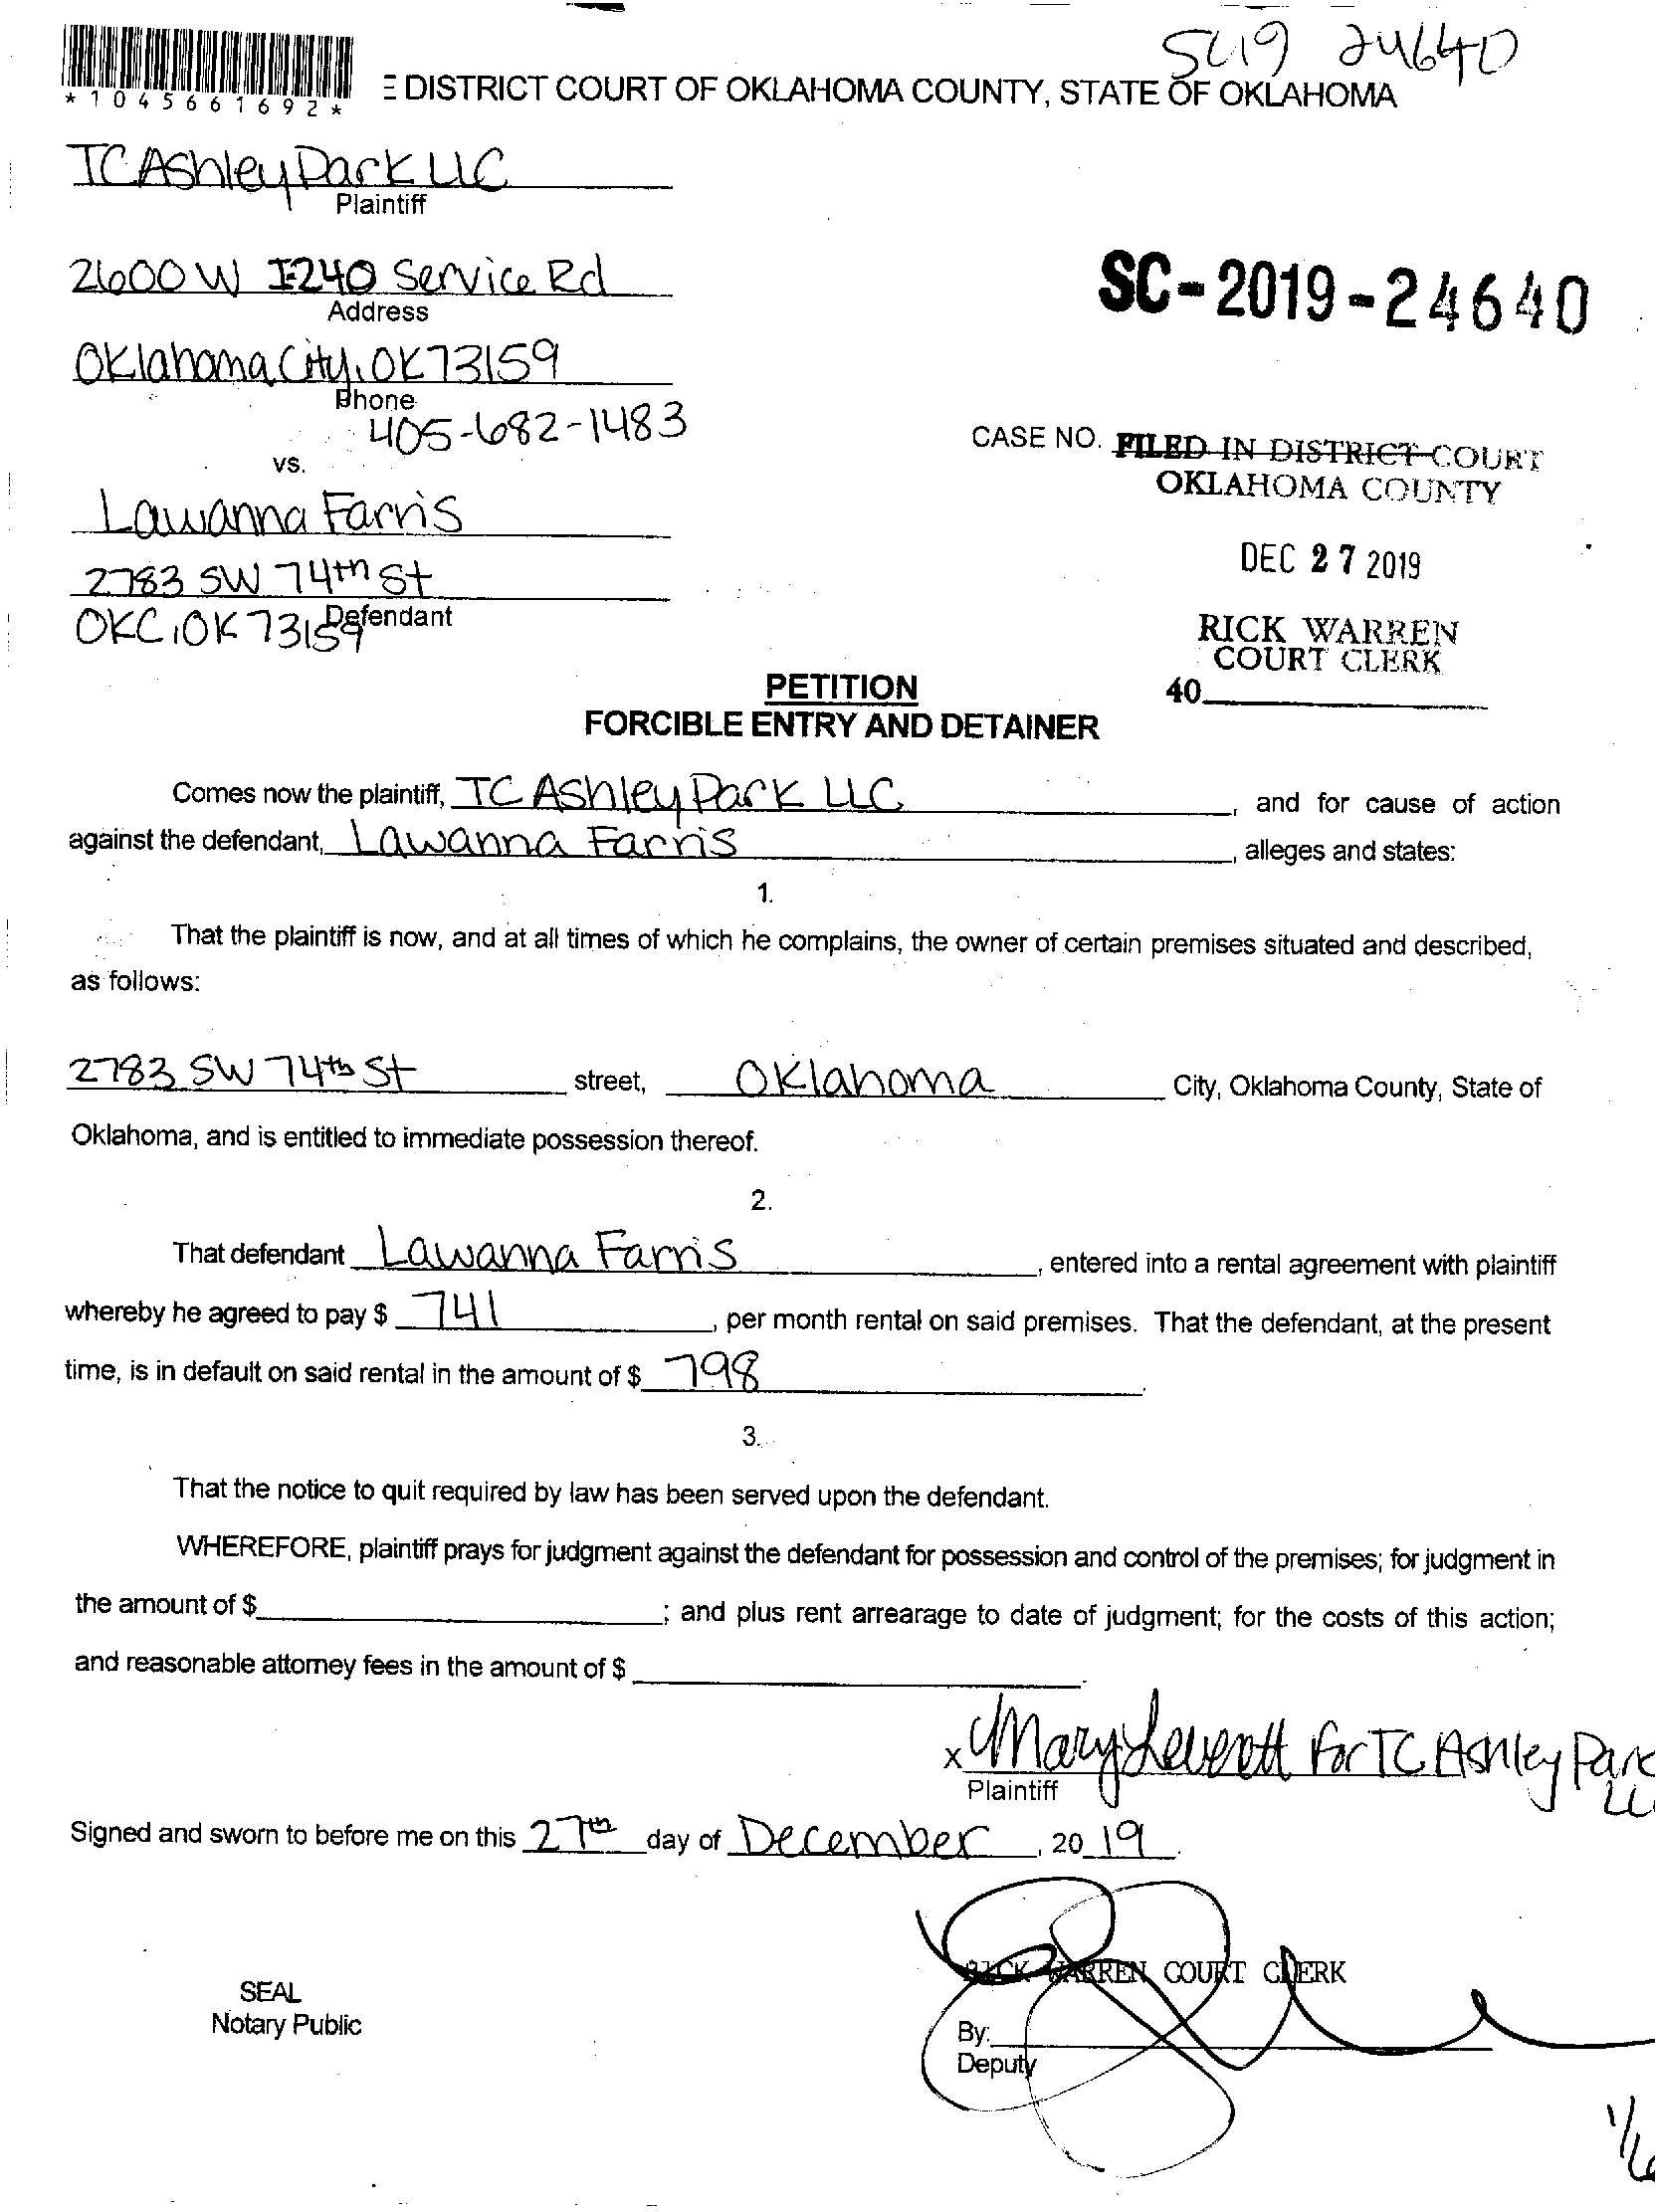 SC19 24640
*1045661692*
E DISTRICT COURT OF OKLAHOMA COUNTY, STATE OF OKLAHOMA
TC Ashley Park LLC
Plaintiff
2600 W I-240 Service Rd
Address
SC-2019-24640
Oklahoma City, OK 73159
Phone
405-682-1483
CASE NO. FILED IN DISTRICT COURT
OKLAHOMA COUNTY
vs.
Lawanna Farris
DEC 27 2019
2783 SW 74th St
OKC, OK 73159
Defendant
RICK WARREN
COURT CLERK
40
PETITION
FORCIBLE ENTRY AND DETAINER
Comes now the plaintiff, TC Ashley Park LLC, and for cause of action
against the defendant, Lawanna Farris, alleges and states:
1.
That the plaintiff is now, and at all times of which he complains, the owner of certain premises situated and described,
as follows:
2783 SW 74th St street, Oklahoma City, Oklahoma County, State of
Oklahoma, and is entitled to immediate possession thereof.
2.
That defendant Lawanna Farris, entered into a rental agreement with plaintiff
whereby he agreed to pay $ 741, per month rental on said premises. That the defendant, at the present
time, is in default on said rental in the amount of $ 798.
3.
That the notice to quit required by law has been served upon the defendant.
WHEREFORE, plaintiff prays for judgment against the defendant for possession and control of the premises; for judgment in
the amount of $ ; and plus rent arrearage to date of judgment; for the costs of this action;
and reasonable attorney fees in the amount of $ .
x Mary Leverett for TC Ashley Park
LLC
Plaintiff
Signed and sworn to before me on this 27th day of December, 2019.
RICK WARREN COURT CLERK
SEAL
Notary Public
By:
Deputy